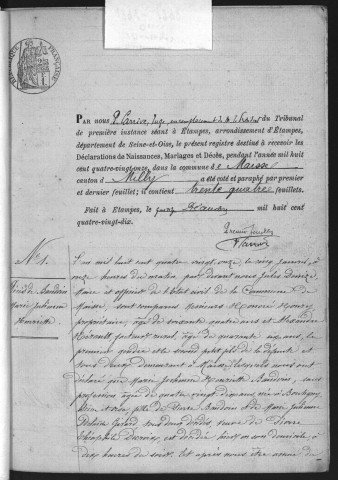 RÉPUBLIQUE FRANÇAISE
PAR nous P. Carrive, Juge, en remplacement de M. le Président du Tribunal
de première instance séant à Étampes, arrondissement d'Étampes,
département de Seine-et-Oise, le présent registre destiné à recevoir les
Déclarations de Naissances, Mariages et Décès, pendant l'année mil huit
cent quatre-vingt-onze, dans la commune de Maisse
canton d Milly a été coté et paraphé par premier
et dernier feuillet; il contient trente quatre feuillets.
Fait à Étampes, le quinze Décembre mil huit cent
quatre-vingt-dix.
Premier feuillet
N° 1.
Décès de Baudoin
Marie Julienne
Henriette.
L'an mil huit cent quatre vingt onze, le cinq Janvier, à
onze heures du matin, par devant nous Jules
Maire et officier de l'état civil de la Commune de
Maisse, sont comparus Messieurs Honoré
propriétaire, âgé de soixante quatre ans et Alexandre
âgé de quarante ans, le
premier gendre et le second petit fils de la défunte et
tous deux demeurant à Maisse, lesquels nous ont
déclaré que Marie Julienne Henriette Baudoin, sans
profession, âgée de quatre vingt deux ans, née à Boutigny,
fille de Pierre Baudoin et de Marie Julienne
tous deux décédés, veuve de Pierre
Théophile est décédée hier en son domicile, à
dix heures du soir. Et après nous être assuré du